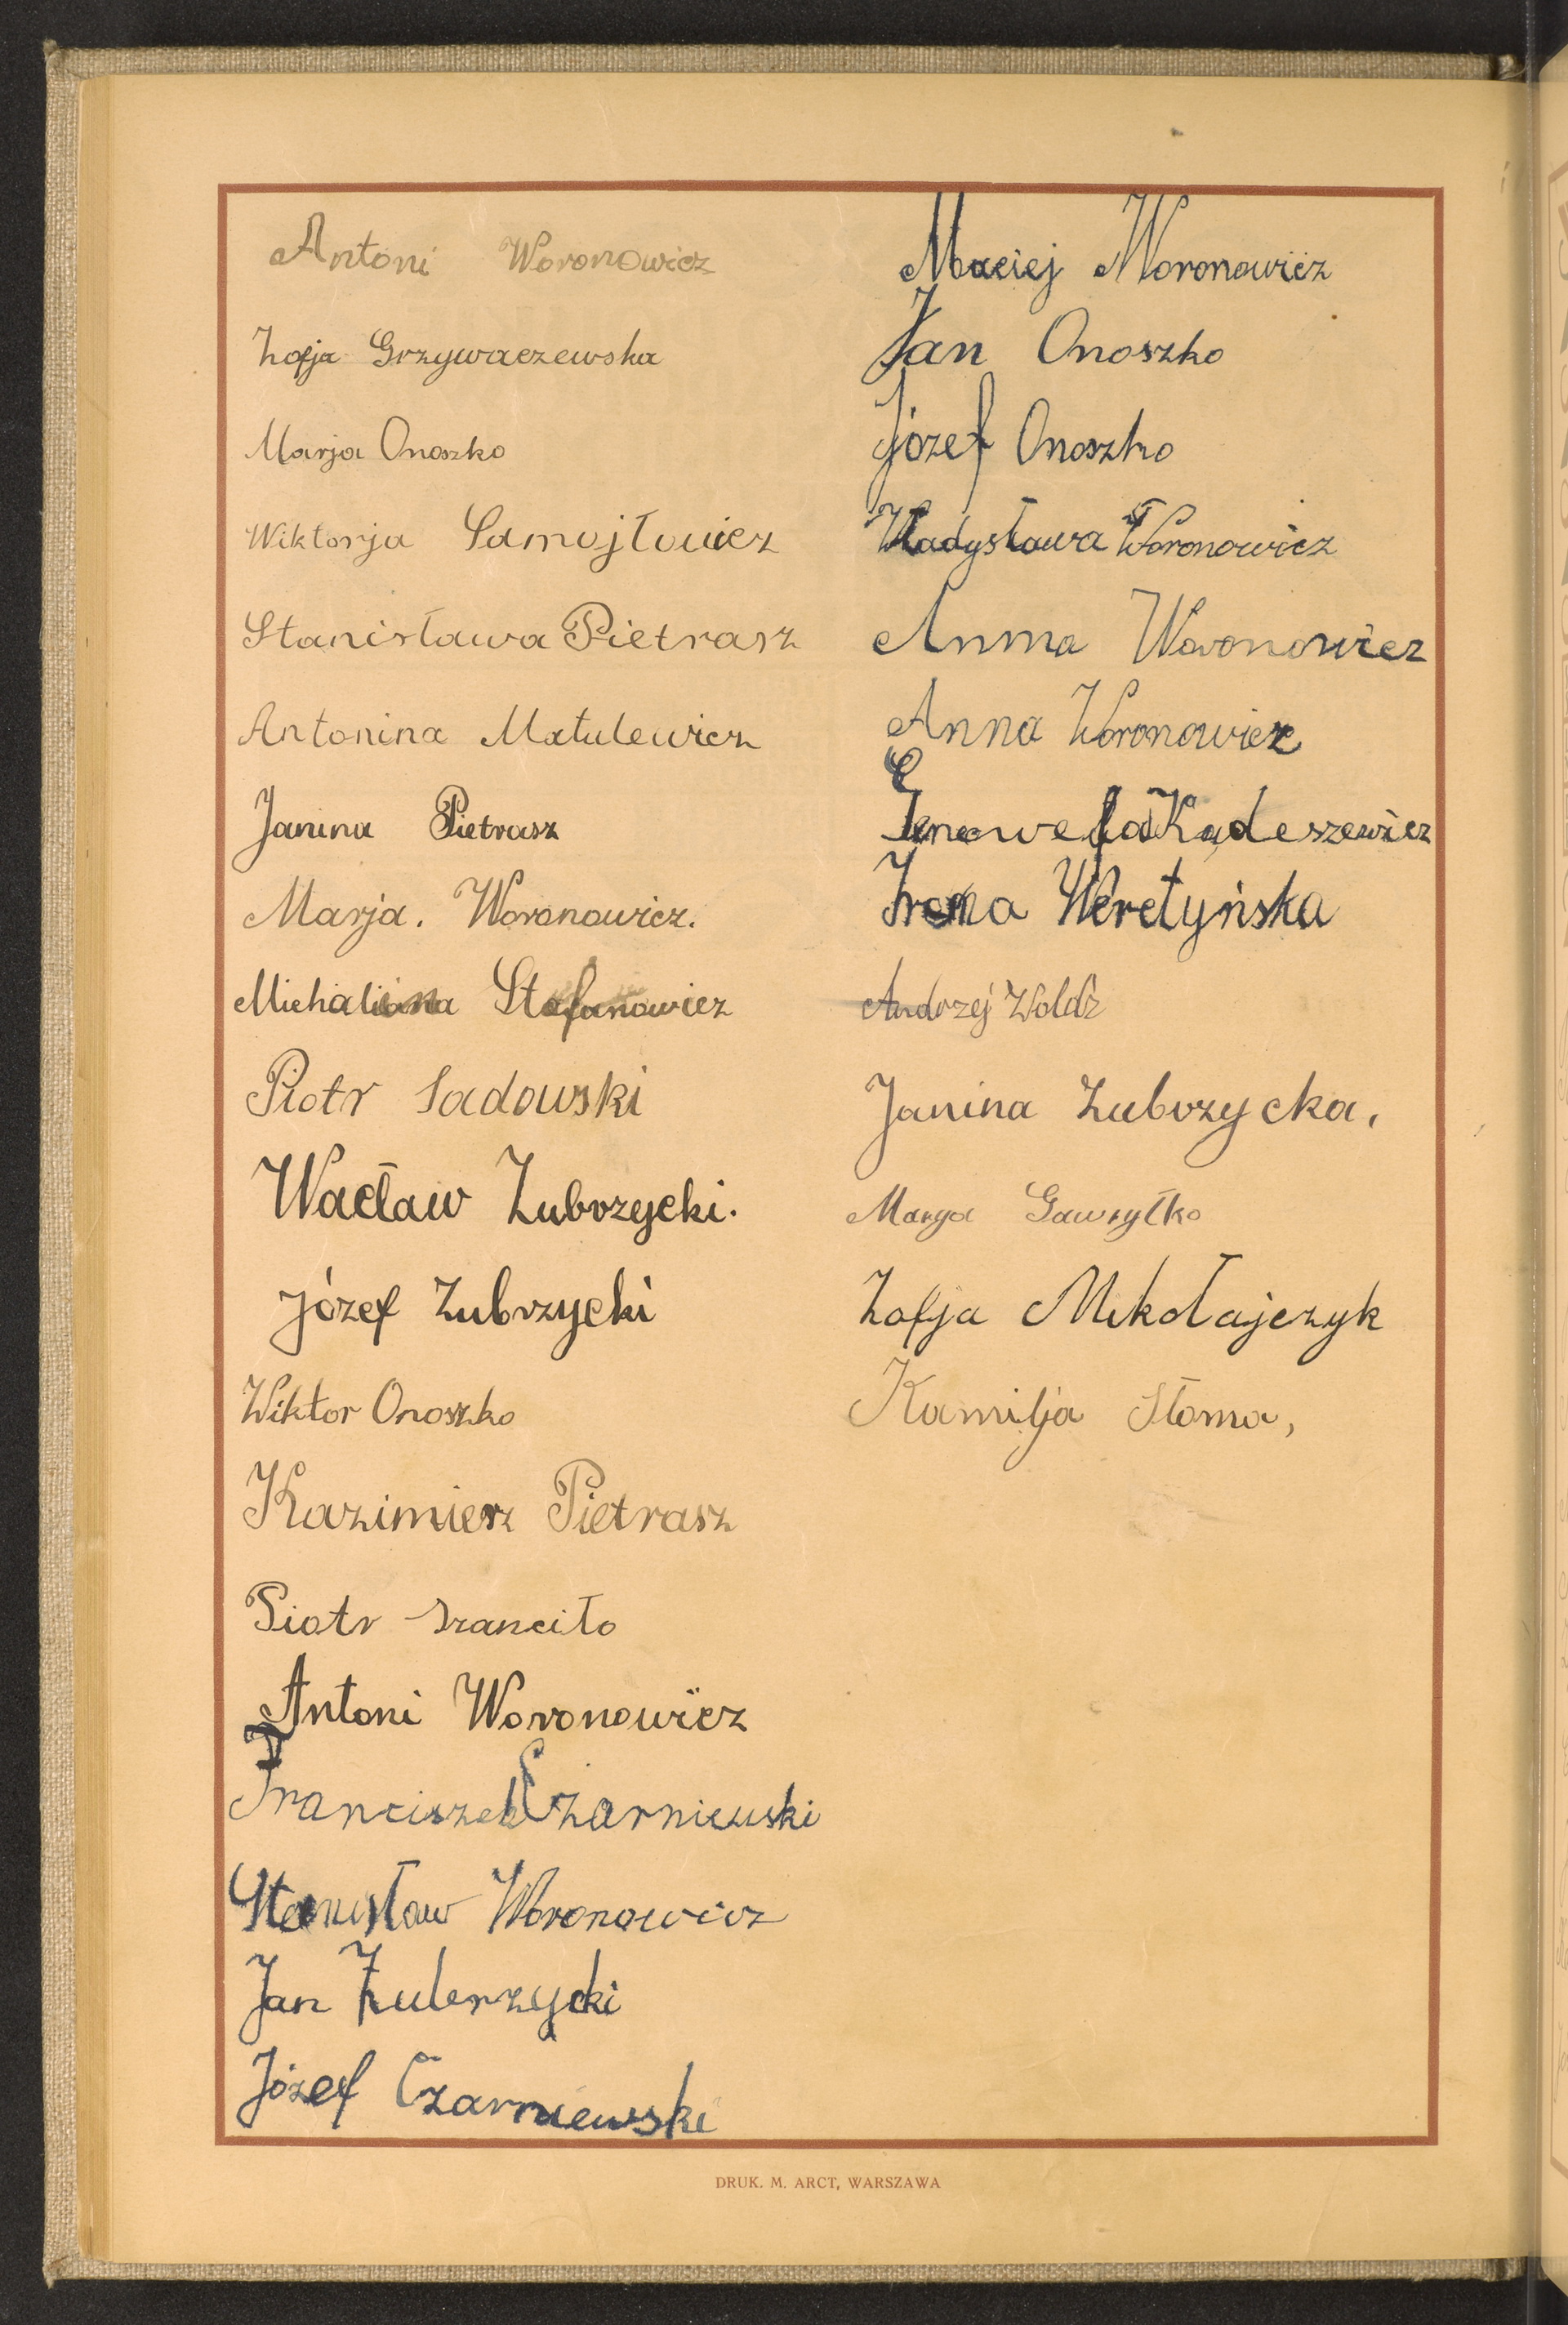 Antoni Woronowicz
Zofja Grzywaczewska
Marja Onoszko
Wiktorja Samojłowicz
Stanisława Pietrasz
Antonina Matulewicz
Janina Pietrasz
Marja. Woronowicz.
Michalina Stefanowicz
Piotr Sadowski
Wacław Zubrzycki.
Józef Zubrzycki
Wiktor Onoszko
Kazimierz Pietrasz
Piotr Szanciło
Antoni Woronowicz
Franciszek Czarniewski
Stanisław Woronowicz
Jan Zubrzycki
Józef Czarniewski
Maciej Woronowicz
Jan Onoszko
Józef Onoszko
Władysława Woronowicz
Anna Woronowicz
Anna Woronowicz
Genowefa Kadeszewicz
Irena Weretyńska
Andrzej
Janina Zubrzycka,
Marya Gawryłko
Zofja Mikołajczyk
Kamilja Słoma,
DRUK. M. ARCT, WARSZAWA